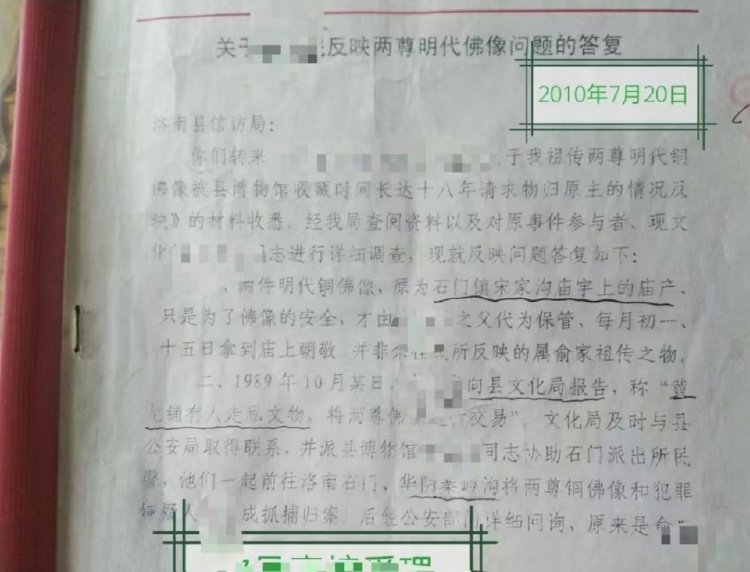 关于 反映两尊明代佛像问题的答复
2010年7月20日
洛南县信访局：
你们转来 于我祖传两尊明代铜
佛像被县博物馆收藏时间长达十八年请求物归原主的情况反
映》的材料收悉。经我局查阅资料以及对原事件参与者、现文
化 同志进行详细调查，现就反映问题答复如下：
、两件明代铜佛像，原为石门镇宋家沟庙宇上的庙产，
只是为了佛像的安全，才由 之父代为保管，每月初一、
十五日拿到庙上朝敬，并非 所反映的属俞家祖传之物。
二、1989年10月某日， 向县文化局报告，称“
铺有人走私文物，将两尊佛 交易”。文化局及时与县
公安局取得联系，并派县博物馆 同志协助石门派出所民
警，他们一起前往洛南石门、华阴 沟将两尊铜佛像和犯罪
嫌疑人 成抓捕归案。后经公安部门详细问询，原来是